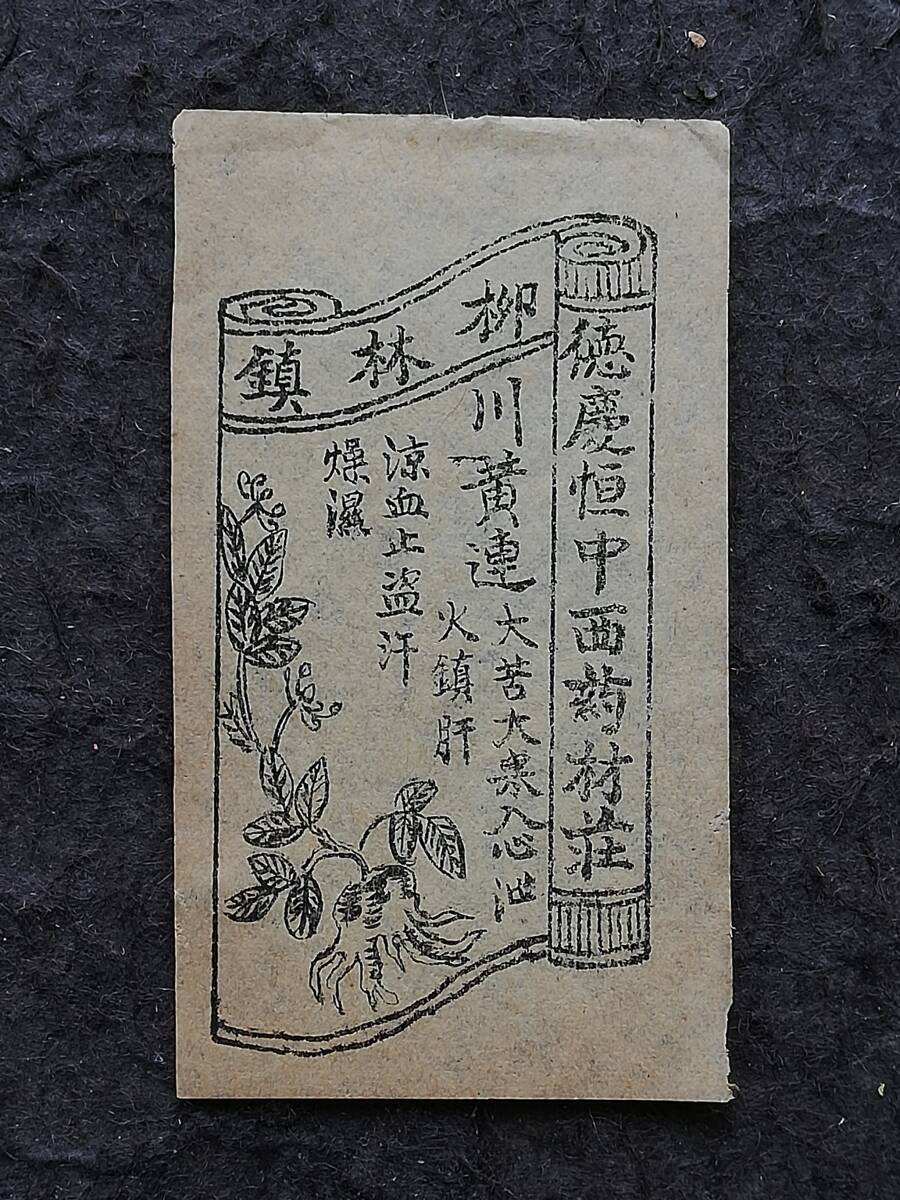 德慶恒中西药材莊
柳林鎮
川黄連
大苦大寒入心泄
火鎮肝
涼血止盗汗
燥濕